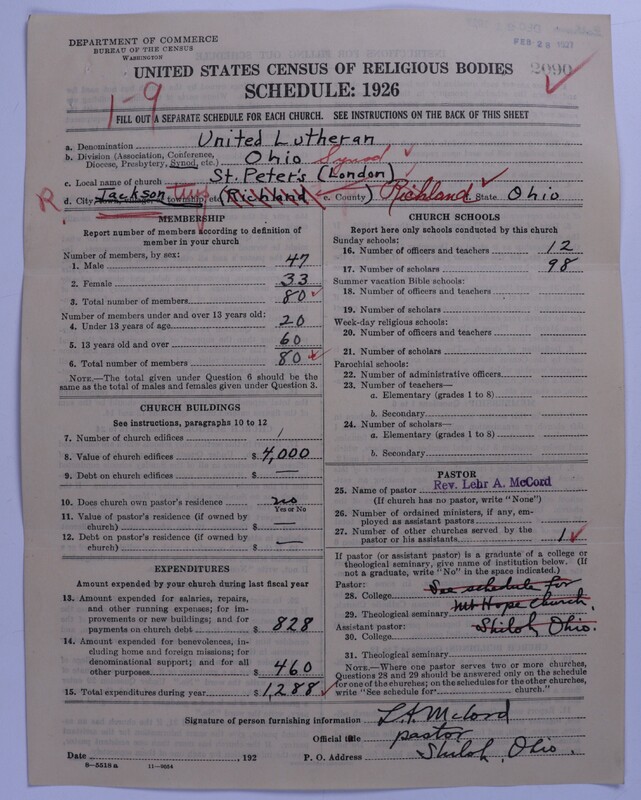 DEPARTMENT OF COMMERCE
BUREAU OF THE CENSUS
WASHINGTON
FEB 28 1927
2090
UNITED STATES CENSUS OF RELIGIOUS BODIES
SCHEDULE: 1926
1-9
FILL OUT A SEPARATE SCHEDULE FOR EACH CHURCH. SEE INSTRUCTIONS ON THE BACK OF THIS SHEET
a. Denomination United Lutheran
b. Division (Association, Conference, Diocese, Presbytery, Synod, etc.) Ohio Synod
c. Local name of church St. Peter's (London)
R d. City, township, etc. Jackson Twp (Richland e. County) Richland f. State Ohio
MEMBERSHIP
Report number of members according to definition of
member in your church
Number of members, by sex:
1. Male 47
2. Female 33
3. Total number of members 80
Number of members under and over 13 years old:
4. Under 13 years of age 20
5. 13 years old and over 60
6. Total number of members 80
NOTE.—The total given under Question 6 should be the
same as the total of males and females given under Question 3.
CHURCH BUILDINGS
See instructions, paragraphs 10 to 12
7. Number of church edifices 1
8. Value of church edifices $ 4,000
9. Debt on church edifices $ —
10. Does church own pastor's residence no
Yes or No
11. Value of pastor's residence (if owned by
church) $ —
12. Debt on pastor's residence (if owned by
church) $ —
EXPENDITURES
Amount expended by your church during last fiscal year
13. Amount expended for salaries, repairs,
and other running expenses; for im-
provements or new buildings; and for
payments on church debt $ 828
14. Amount expended for benevolences, in-
cluding home and foreign missions; for
denominational support; and for all
other purposes $ 460
15. Total expenditures during year $ 1,288
CHURCH SCHOOLS
Report here only schools conducted by this church
Sunday schools:
16. Number of officers and teachers 12
17. Number of scholars 98
Summer vacation Bible schools:
18. Number of officers and teachers
19. Number of scholars
Week-day religious schools:
20. Number of officers and teachers
21. Number of scholars
Parochial schools:
22. Number of administrative officers
23. Number of teachers—
a. Elementary (grades 1 to 8)
b. Secondary
24. Number of scholars—
a. Elementary (grades 1 to 8)
b. Secondary
PASTOR
25. Name of pastor Rev. Lehr A. McCord
(If church has no pastor, write "None")
26. Number of ordained ministers, if any, em-
ployed as assistant pastors
27. Number of other churches served by the
pastor or his assistants 1
If pastor (or assistant pastor) is a graduate of a college or
theological seminary, give name of institution below. (If
not a graduate, write "No" in the space indicated.)
Pastor:
28. College See schedule for
29. Theological seminary Mt Hope Church,
Assistant pastor: Shiloh Ohio.
30. College
31. Theological seminary
NOTE.—Where one pastor serves two or more churches,
Questions 28 and 29 should be answered only on the schedule
for one of the churches; on the schedules for the other churches,
write "See schedule for church."
Signature of person furnishing information L. A. McCord
Official title pastor
Date , 192 P. O. Address Shiloh, Ohio.
8—5518 a 11—9034